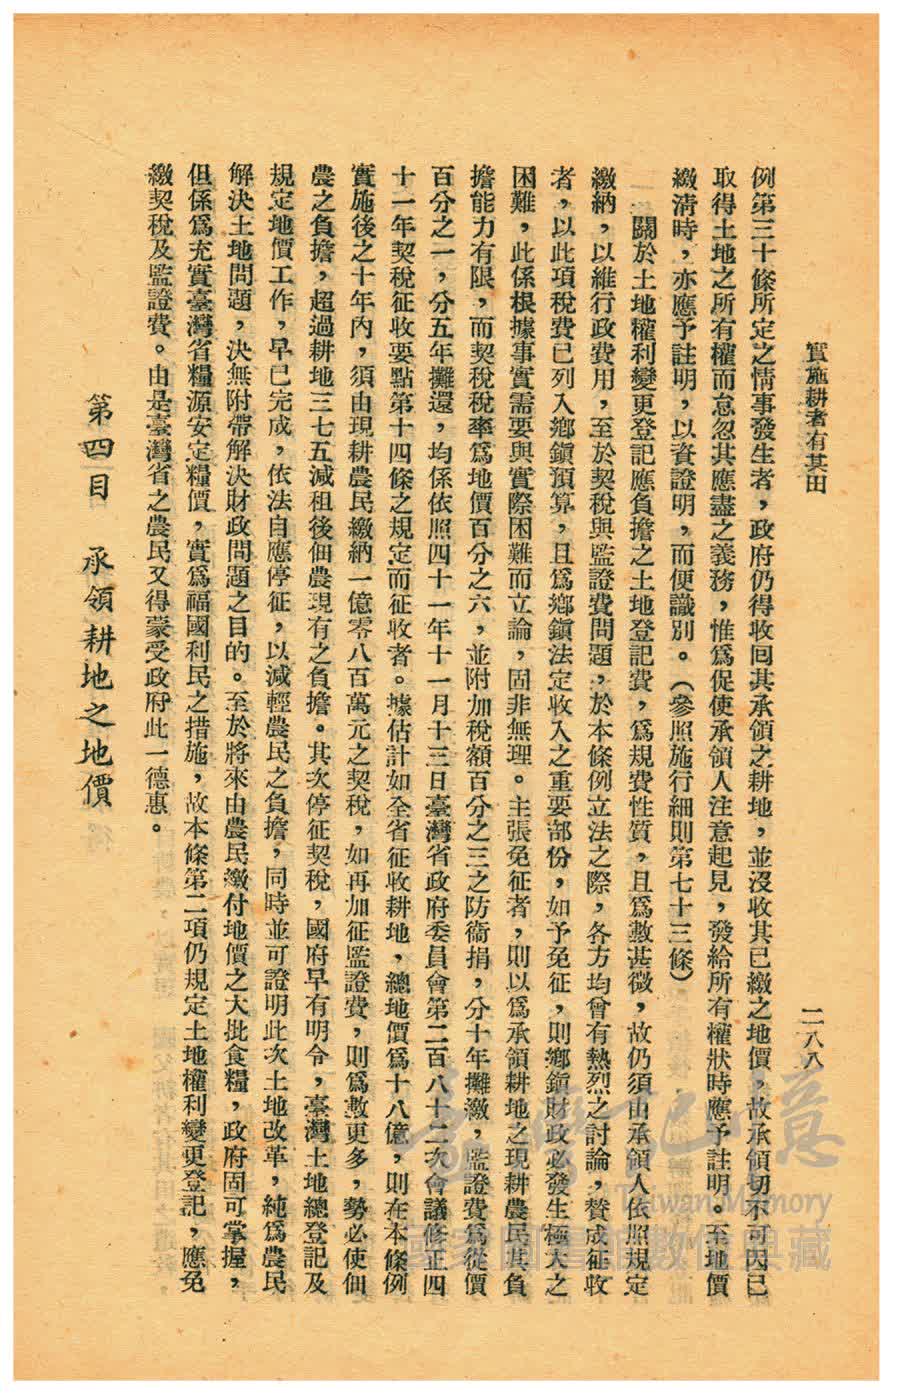 實施耕者有其田
二八八
例第三十條所定之情事發生者，政府仍得收回其承領之耕地，並沒收其已繳之地價，故承領切不可因已
取得土地之所有權而怠忽其應盡之義務，惟爲促使承領人注意起見，發給所有權狀時應予註明。至地價
繳清時，亦應予註明，以資證明，而便識別。（參照施行細則第七十三條）
關於土地權利變更登記應負擔之土地登記費，爲規費性質，且爲數甚微，故仍須由承領人依照規定
繳納，以維行政費用，至於契稅與監證費問題，於本條例立法之際，各方均曾有熱烈之討論，贊成征收
者，以此項稅費已列入鄉鎮預算，且爲鄉鎮法定收入之重要部份，如予免征，則鄉鎮財政必發生極大之
困難，此係根據事實需要與實際困難而立論，固非無理。主張免征者，則以爲承領耕地之現耕農民其負
擔能力有限，而契稅稅率爲地價百分之六，並附加稅額百分之三之防衞捐，分十年攤繳，監證費爲從價
百分之一，分五年攤還，均係依照四十一年十一月十三日臺灣省政府委員會第二百八十二次會議修正四
十一年契稅征收要點第十四條之規定而征收者。據估計如全省征收耕地，總地價爲十八億，則在本條例
實施後之十年內，須由現耕農民繳納一億零八百萬元之契稅，如再加征監證費，則爲數更多，勢必使佃
農之負擔，超過耕地三七五減租後佃農現有之負擔。其次停征契稅，國府早有明令，臺灣土地總登記及
規定地價工作，早已完成，依法自應停征，以減輕農民之負擔，同時並可證明此次土地改革，純爲農民
解決土地問題，決無附帶解決財政問題之目的。至於將來由農民繳付地價之大批食糧，政府固可掌握，
但係爲充實臺灣省糧源安定糧價，實爲福國利民之措施，故本條第二項仍規定土地權利變更登記，應免
繳契稅及監證費。由是臺灣省之農民又得蒙受政府此一德惠。
第四目　承領耕地之地價
臺灣記憶
Taiwan Memory
國家圖書館數位典藏